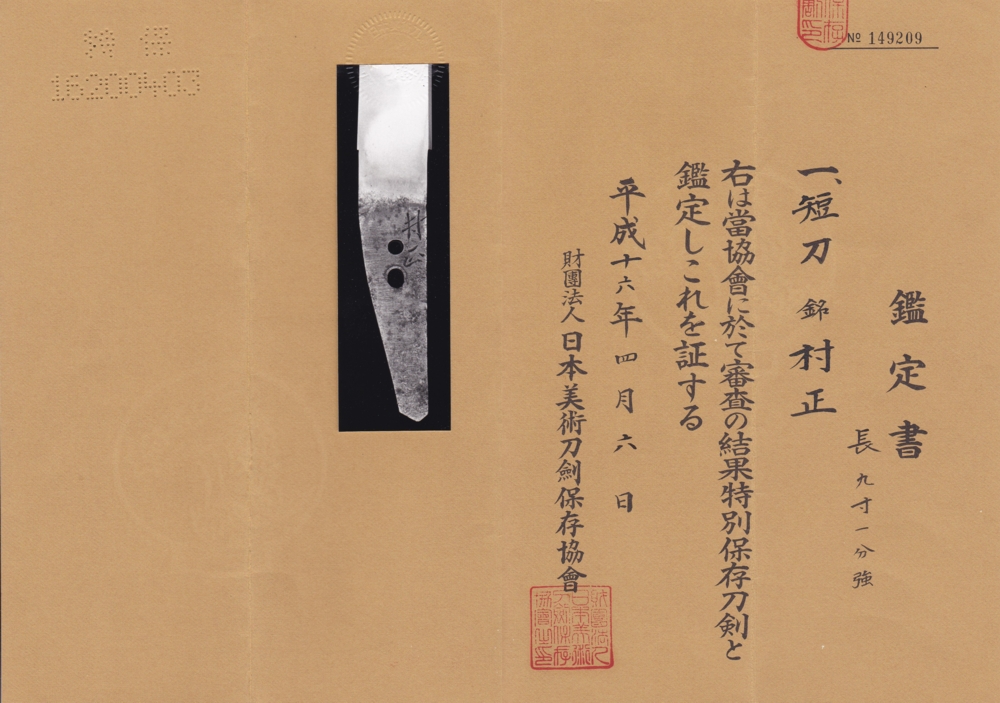 № 149209
鑑定書
長 九寸一分強
一、短刀 銘 村正
右は當協會に於て審査の結果特別保存刀剣と
鑑定しこれを証する
平成十六年四月六日
財團法人日本美術刀劍保存協會
特保
16200403
村正